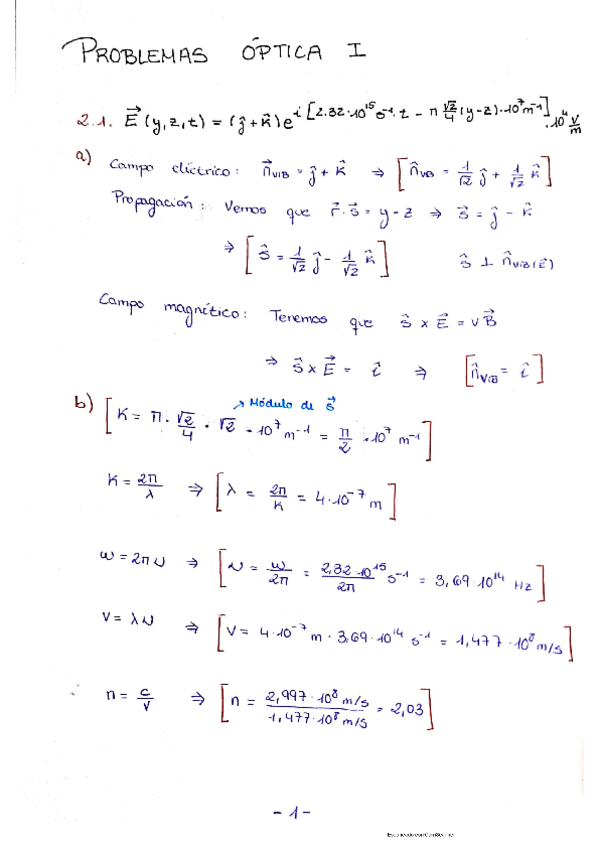 PROBLEMAS ÓPTICA I
2.1. E⃗ (y,z,t) = (ĵ+k̂) e^i [2.32·10^15 s^-1·t - π √2/4 (y-z)·10^7 m^-1] ·10^4 V/m
a) Campo eléctrico: n⃗VIB = ĵ + k̂ ⇒ [n̂VIB = 1/√2 ĵ + 1/√2 k̂]
Propagación: Vemos que r⃗·s⃗ = y-z ⇒ s⃗ = ĵ - k̂
⇒ [ŝ = 1/√2 ĵ - 1/√2 k̂] ŝ ⊥ n̂VIB(E⃗)
Campo magnético: Tenemos que ŝ x E⃗ = v B⃗
⇒ ŝ x E⃗ = î ⇒ [n̂VIB = î]
b) [K = π · √2/4 · √2 · 10^7 m^-1 = π/2 · 10^7 m^-1]
↗ Módulo de s⃗
K = 2π/λ ⇒ [λ = 2π/K = 4·10^-7 m]
ω = 2πν ⇒ [ν = ω/2π = 2,32·10^15/2π s^-1 = 3,69·10^14 Hz]
V = λν ⇒ [V = 4·10^-7 m · 3,69·10^14 s^-1 = 1,477·10^8 m/s]
n = c/V ⇒ [n = 2,997·10^8 m/s / 1,477·10^8 m/s = 2,03]
- 1 -
Escaneado con CamScanner